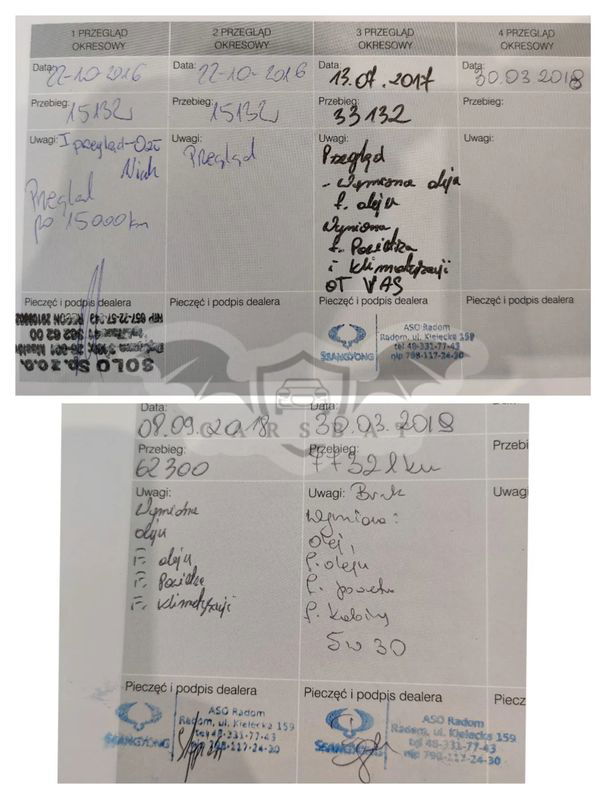 1 PRZEGLĄD
OKRESOWY
2 PRZEGLĄD
OKRESOWY
3 PRZEGLĄD
OKRESOWY
4 PRZEGLĄD
OKRESOWY
Data: 22-10-2016
Data: 22-10-2016
Data: 13.07.2017
Data: 30.03 2018
Przebieg: 15132
Przebieg: 15132
Przebieg: 33132
Przebieg:
Uwagi: I przegląd
Przegląd
po 15000km
Uwagi:
Przegląd
Uwagi:
Przegląd
- Wymiana oleju
f. oleju
Wymiana
f. Powietrza
i klimatyzacji
OT VAS
Uwagi:
Pieczęć i podpis dealera
Pieczęć i podpis dealera
Pieczęć i podpis dealera
Pieczęć i podpis dealera
SOLO Sp. z o.o.
SSANGYONG
ASO Radom
Radom, ul. Kielecka 159
tel 48-331-77-43
nip 798-117-24-30
CARSBAT
Data:
08.09.2018
Data:
30.03.2019
Przebieg:
62300
Przebieg:
77321 km
Przebi
Uwagi:
Wymiana
oleju
F. oleju
F. Powietrza
F. klimatyzacji
Uwagi: Brak
wymiana:
olej,
f. oleju
f. powietrza
f. kabiny
5W30
Uwag
Pieczęć i podpis dealera
Pieczęć i podpis dealera
Piecz
SSANGYONG
ASO Radom
Radom, ul. Kielecka 159
tel 48-331-77-43
nip 798-117-24-30
SSANGYONG
ASO Radom
Radom, ul. Kielecka 159
tel 48-331-77-43
nip 798-117-24-30